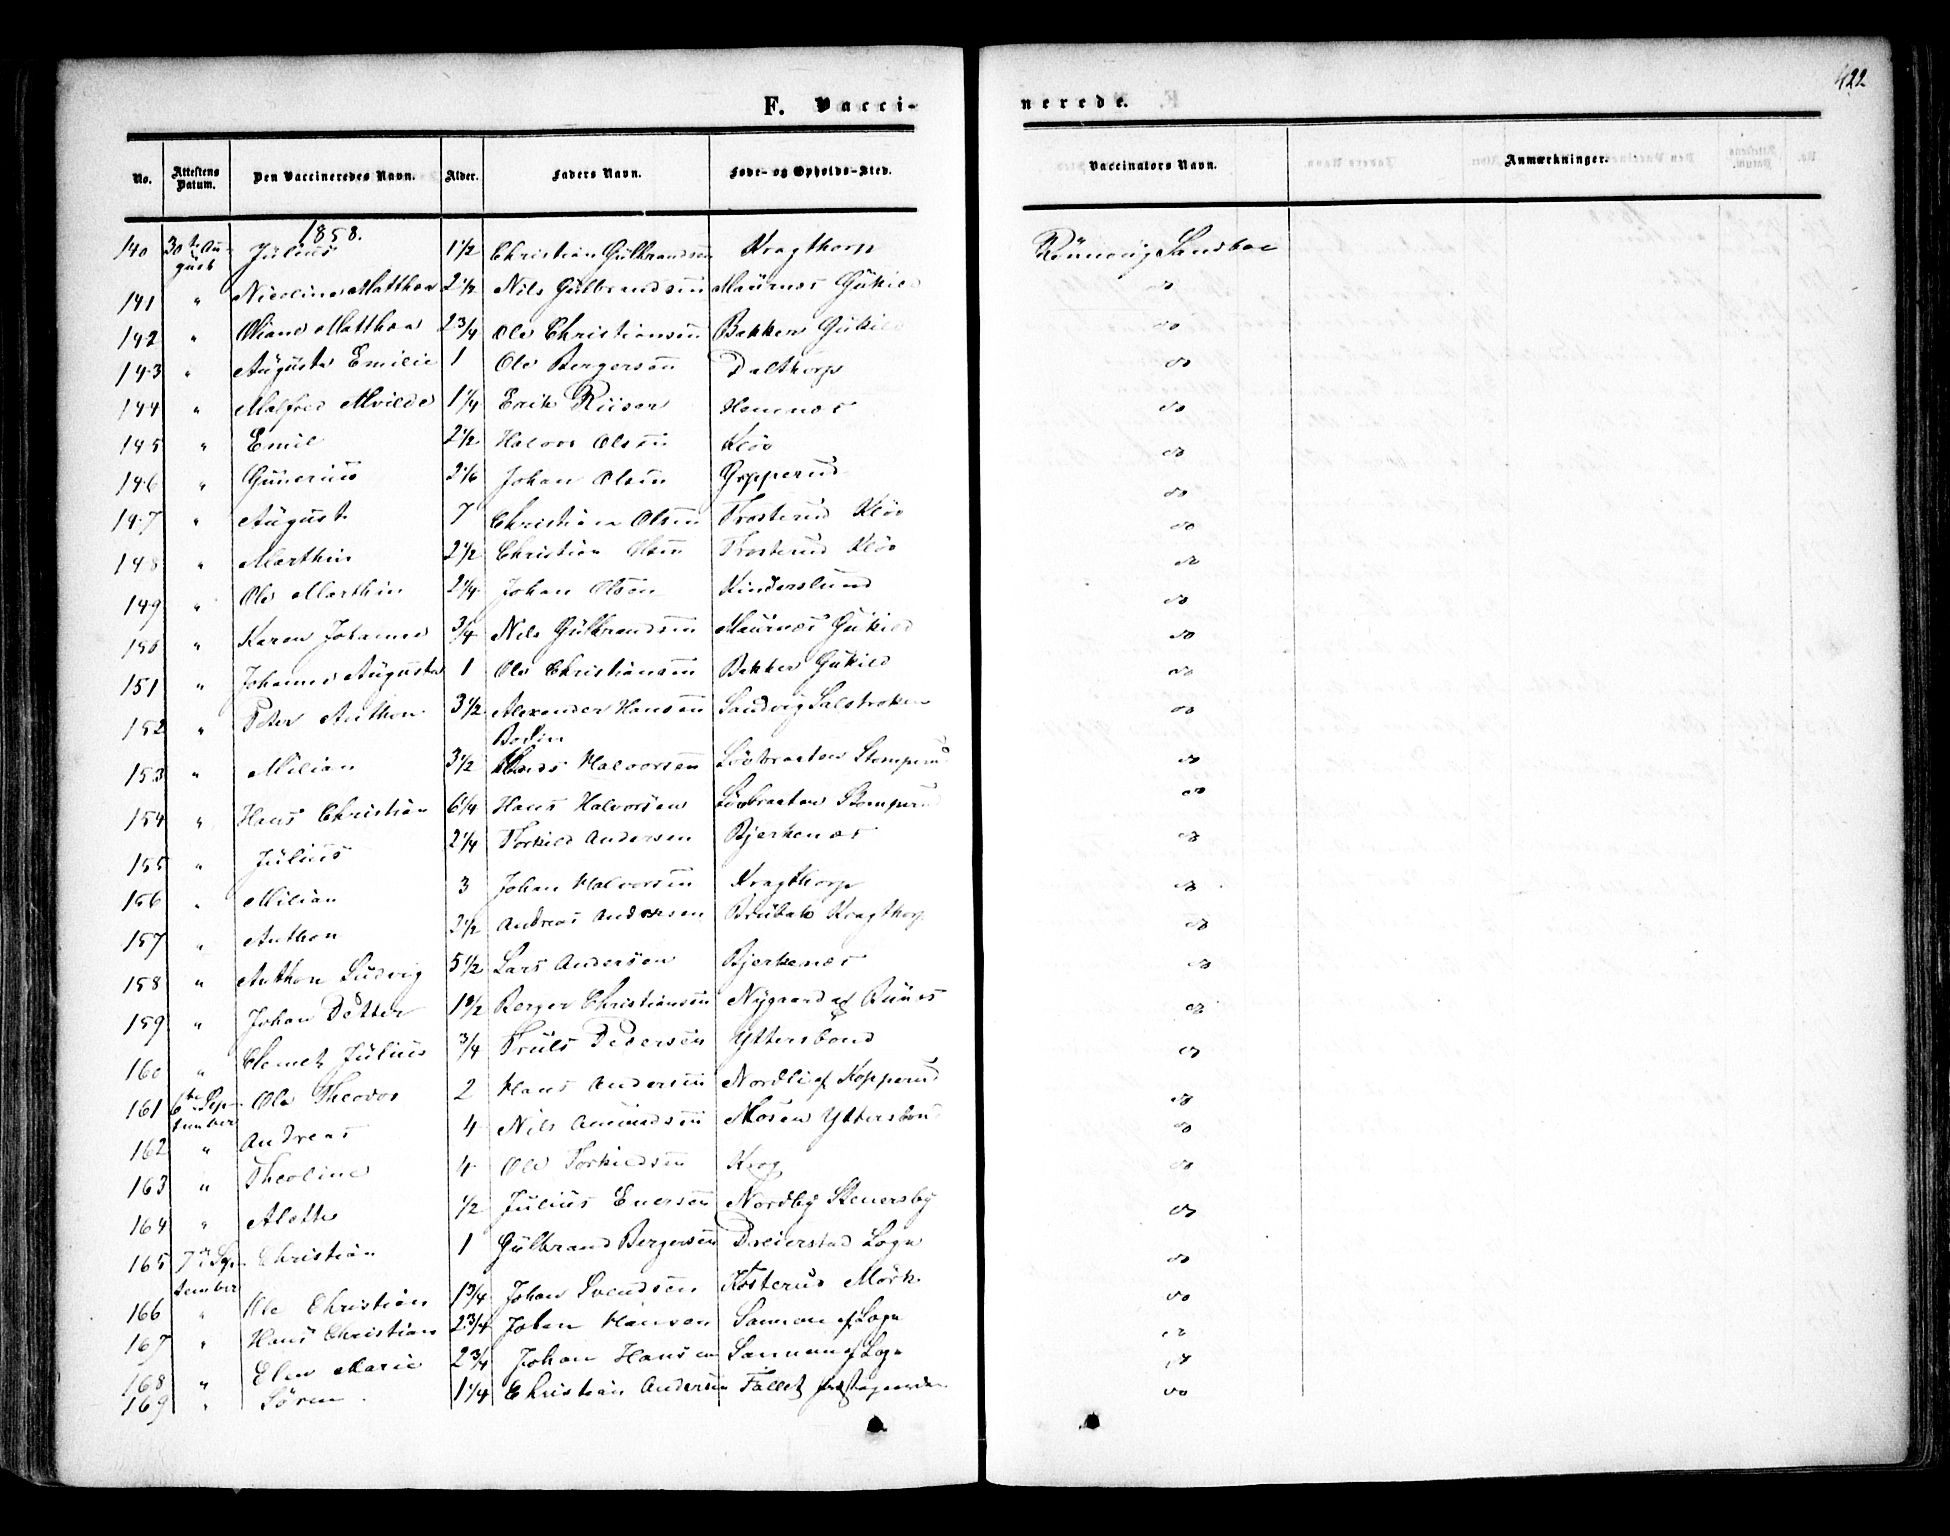 422
F. Vacci-
nerede.
No. Attestens Datum. Den Vaccineredes Navn. Alder. Faders Navn. Føde- og Opholds-Sted. Vaccinators Navn. Anmærkninger.
1858.
140 30te August Julius 1 1/2 Christian Gulbrandsen Kragthorp Rönnevig Sandbæ
141 " Nicoline Matthea 2 1/2 Nils Gulbrandsen Maurnæs Gukild do
142 " Matthea 2 3/4 Ole Christiansen Bakken Gukild do
143 " Auguste Emilie 1 Ole Bergersen Dalthorp do
144 " 1 1/4 Erik Riiser Hemnæs do
145 " Emil 2 1/2 Halvor Olsen Kløv do
146 " Gunerius 2 1/6 Johan Olsen do
147 " August 7 Christian Olsen Trosterud Kløv do
148 " Marthin 2 1/2 Christian Olsen Trosterud Kløv do
149 " Ole Marthin 2 1/4 Johan Olsen Kinderslund do
150 " Karen Johanne 3/4 Nils Gulbrandsen Maurnæs Gukild do
151 " Johanne Auguste 1 Ole Christiansen Bakken Gukild do
152 " Peter Anthon 3 1/2 Alexander Hansen Bodin Sandvig do
153 " Milian 3 1/2 Hans Halvorsen Løvbraaten Stomperud do
154 " Hans Christian 6 1/4 Hans Halvorsen Løvbraaten Stomperud do
155 " Julius 2 1/4 Torkild Andersen Bjerkenæs do
156 " Milian 3 Johan Halvorsen Kragthorp do
157 " Anthon 2 1/2 Andreas Andersen Kragthorp do
158 " Anthon Ludvig 5 1/2 Lars Andersen Bjerkenæs do
159 " Johan Petter 1 1/2 Berger Christiansen Nygaard af do
160 " Julius 3/4 Truls Pedersen Yttersbond do
161 6te September Ole Theodor 2 Hans Andersen Nordli af Kopperud do
162 " Andreas 4 Nils Amundsen Mosen Yttersbond do
163 " Theoline 4 Ole Torkildsen Krog do
164 " Alette 1/2 Julius Enersen Nordby Stenersby do
165 7de September Christian 1 Gulbrand Bergersen Dreierstad Logn do
166 " Ole Christian 1 3/4 Johan Svendsen Kosterud Mörk do
167 " Hans Christian 2 3/4 Johan Hansen Sannan af Logn do
168 " Elen Marie 2 3/4 Johan Hansen Sannan af Logn do
169 " Sören 1 1/4 Christian Andersen Fallet Præstegaarden do